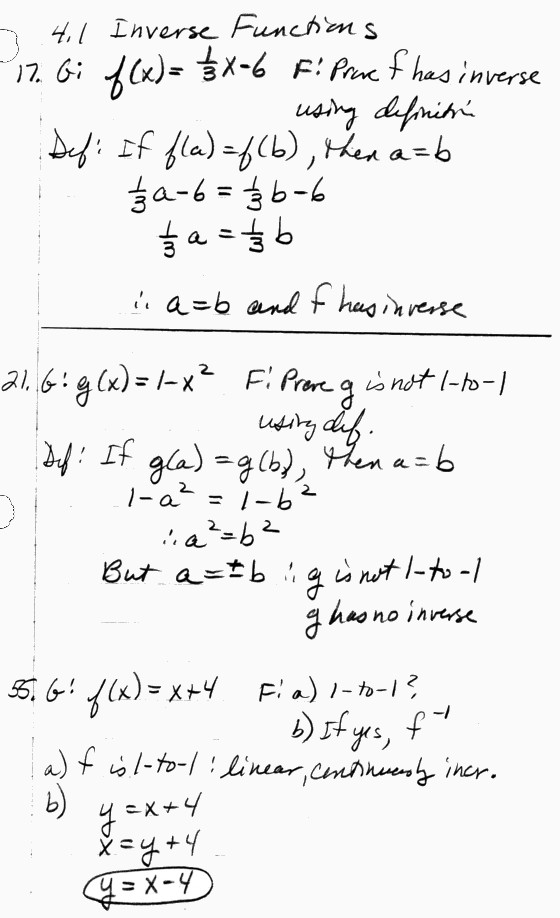 4.1 Inverse Functions
17. G: f(x) = 1/3 x - 6 F: Prove f has inverse
using definition
Def: If f(a) = f(b), then a = b
1/3 a - 6 = 1/3 b - 6
1/3 a = 1/3 b
∴ a = b and f has inverse
21. G: g(x) = 1 - x² F: Prove g is not 1-to-1
using def.
Def: If g(a) = g(b), then a = b
1 - a² = 1 - b²
∴ a² = b²
But a = ±b ∴ g is not 1-to-1
g has no inverse
55. G: f(x) = x + 4 F: a) 1-to-1?
b) If yes, f⁻¹
a) f is 1-to-1 : linear, continuously incr.
b) y = x + 4
x = y + 4
y = x - 4